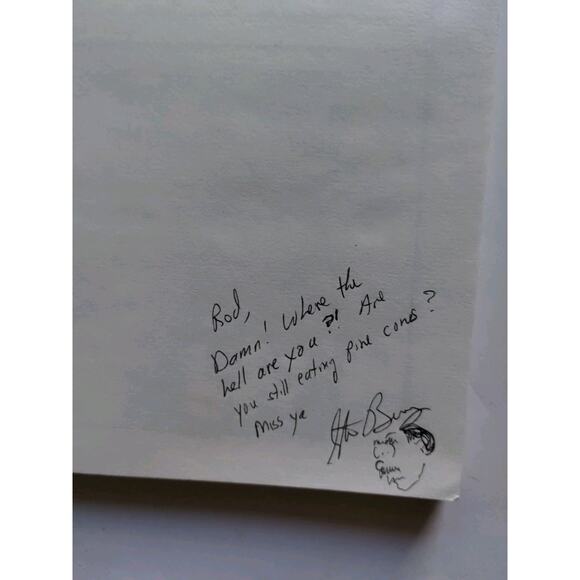 Rod,
Damn! Where the
hell are you?! Are
you still eating pine cones?
Miss ya